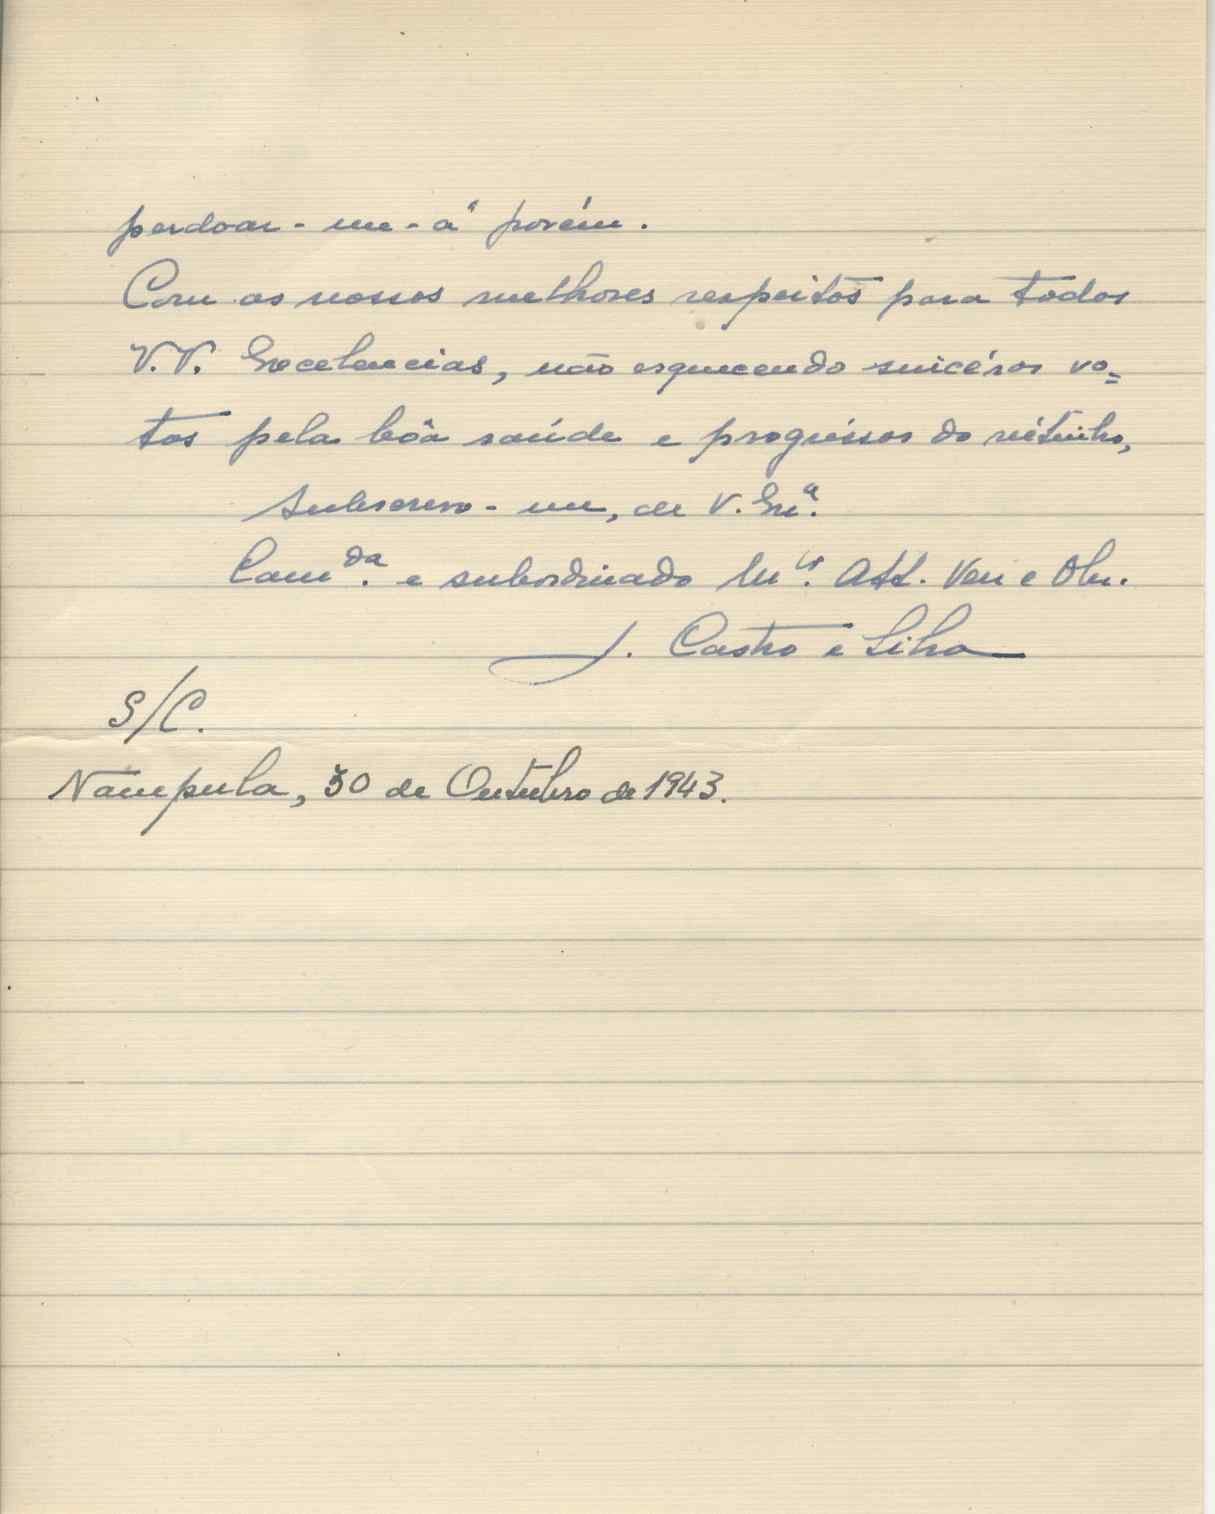 perdoar-me-á porém.
Com os nossos melhores respeitos para todos
V.V. Excelencias, não esquecendo sincéros vo=
tos pela bôa saúde e progréssos do nétinho,
Subscrevo-me, de V. Exª.
Camda. e subordinado Mto. Att. Ven e Obr.
J. Castro e Silva
S/C.
Nampula, 30 de Outubro de 1943.